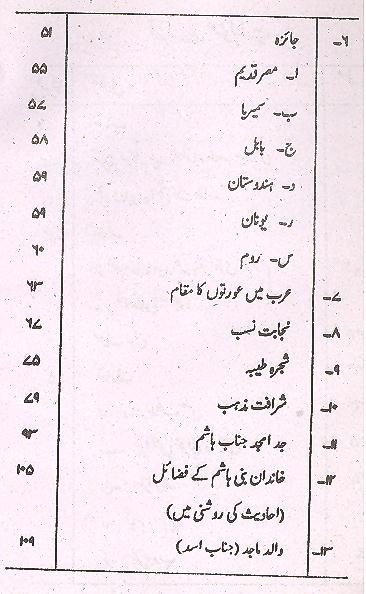 ۶۔ جائزہ ۵۱
ا۔ مصر قدیم ۵۵
ب۔ سمیریا ۵۷
ج۔ بابل ۵۸
د۔ ہندوستان ۵۹
ر۔ یونان ۵۹
س۔ روم ۶۰
۷۔ عرب میں عورتوں کا مقام ۶۳
۸۔ نجابت نسب ۶۷
۹۔ شجرہ طیبہ ۷۵
۱۰۔ شرافت مذہب ۷۹
۱۱۔ جد امجد جناب ہاشم ۹۳
۱۲۔ خاندان بنی ہاشم کے فضائل ۱۰۵
(احادیث کی روشنی میں)
۱۳۔ والد ماجد (جناب اسد) ۱۰۹